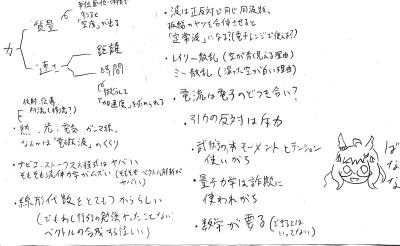 単位面積・体積で
すると
「密度」が出る
力
質量
速さ
距離
時間
微分して
「加速度」を求められる
放射、伝導、
対流も使う?
・熱、光、電気、ガンマ線、
なんかは「電磁波」のくくり
・ナビエ・ストークス方程式はヤバい
そもそも流体力学がムズい(そもそもベクトル解析が
ヤバい)
・線形代数をとてもつからうらしい
(でもわし行列の勉強やったことない
ベクトルの合成する位しい)
・波は正反対で同じ周波数、
振幅のヤツを合体させると
「定常波」になる?(電子レンジで使える?)
・レイリー散乱(空が青く見える理由)
ミー散乱(湿った空が白い理由)
・電流は電子のどつき合い?
・引力の反対は斥力
・武術の本 モーメントとテンション
使いがち
・量子力学は詐欺に
使われがち
・数学が要る(できるとは
いってない)
ば
な
な